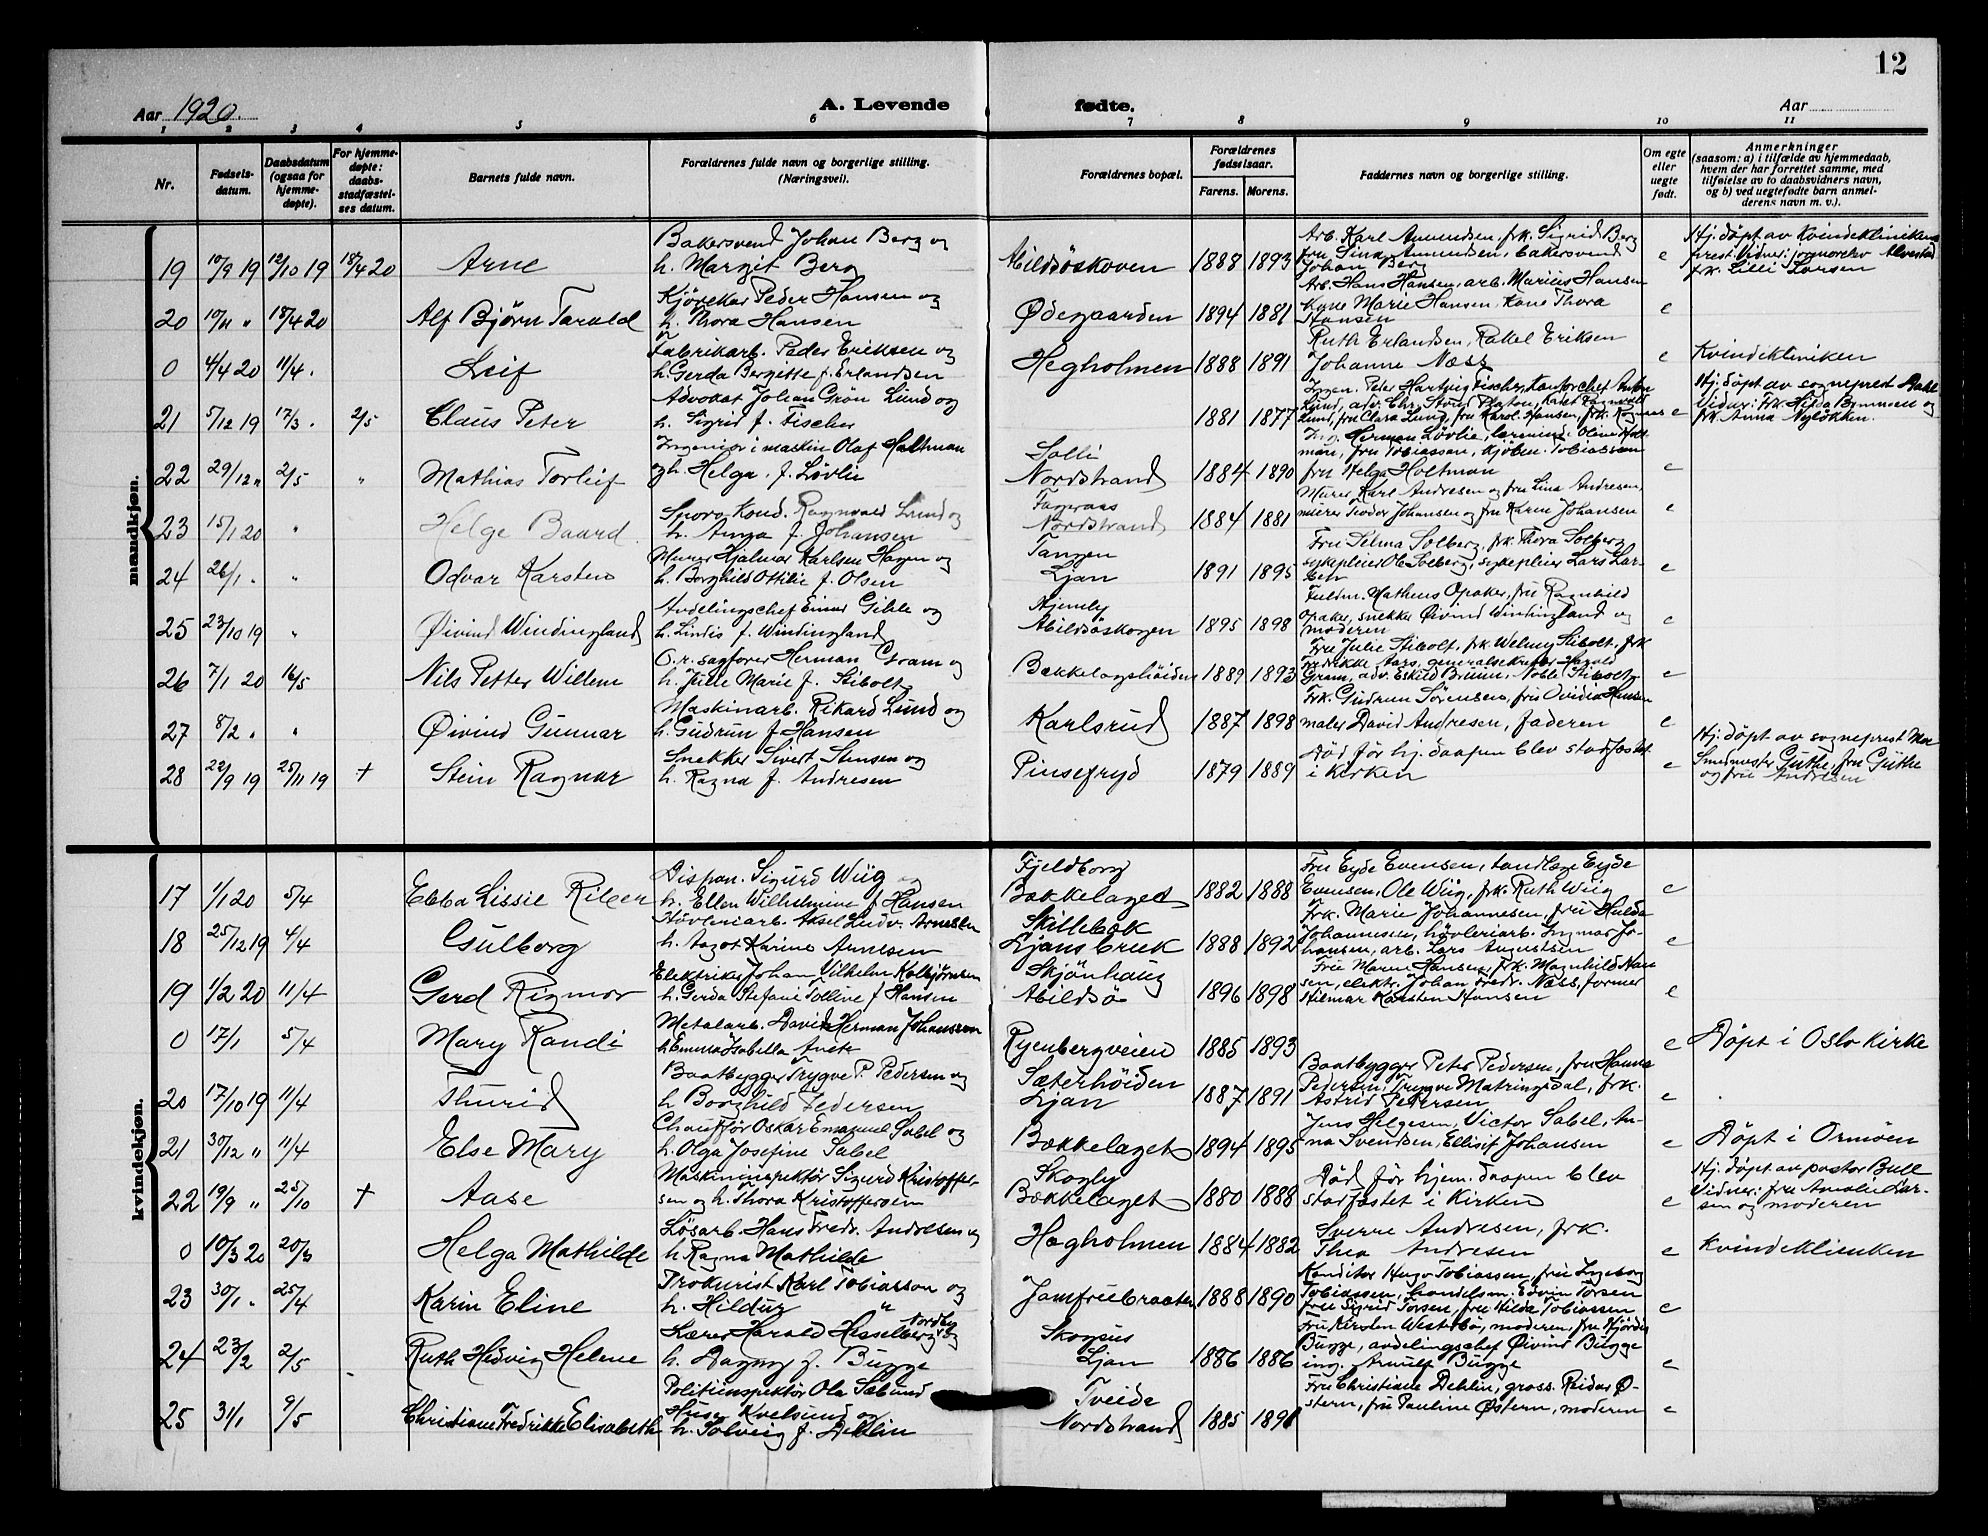 12
Aar 1920. A. Levende fødte. Aar
1 2 3 4 5 6 7 8 9 10 11
Nr.
Fødsels-
datum.
Daabsdatum
(ogsaa for
hjemme-
døpte).
For hjemme-
døpte:
daabs-
stadfæstel-
ses datum.
Barnets fulde navn.
Forældrenes fulde navn og borgerlige stilling.
(Næringsvei).
Forældrenes bopæl.
Forældrenes
fødselsaar.
Farens. Morens.
Faddernes navn og borgerlige stilling.
Om egte
eller
uegte
født.
Anmerkninger
(saasom: a) i tilfælde av hjemmedaab,
hvem der har forrettet samme, med
tilføielse av to daabsvidners navn,
og b) ved uegtefødte barn anmel-
derens navn m. v.).
mandkjøn.
19 10/9 19 12/10 19 18/4 20 Arne
Bakersvend Johan Berg og
h. Margit Berg
Abildsøskoven 1888 1893
Arb. Karl Amundsen, frk. Sigrid Berg
fru Lina Amundsen, bakersvend
Johan Berg
e
Hj. døpt av Kvindeklinikens
prest. Vidner: jordmorelev
frk. Lilli Larsen
20 10/11 " 18/4 20 Alf Bjørn Tarald
Kjørekar Peder Hansen og
h. Thora Hansen
Ødegaarden 1894 1881
Arb. Hans Hansen, arb. Marius Hansen
Kone Marie Hansen, Kone Thora
Hansen
e
0 4/4 20 11/4 . Leif
Fabrikarb. Peder Eriksen og
h. Gerda Bergette f. Erlandsen
Hegholmen 1888 1891
Ruth Erlandsen, Rakel Eriksen
Johanne Næss
e Kvindekliniken
21 5/12 19 17/3 . 2/5 Claus Peter
Advokat Johan Grøn Lund og
h. Sigrid f. Fischer
1881 1877
Ingen. Peter Hartvig Fischer, Kontorchef
Lund, adv. Chr.
Lund, fru Clara Lund, fru Karol. Hansen, frk.
e
Hj. døpt av sogneprest
Vidner: Frk. Hilda og
frk. Anna Nyløkken.
22 29/12 " 2/5 " Mathias Torleif
Ingeniør i maskin Olaf Holtman
og h. Helga f. Løvlie
Solli
Nordstrand 1884 1890
Ing. Herman Løvlie, Oline Holt-
man, fru Tobiassen, kjøbm. Tobiassen
fru Helga Holtman
e
23 15/1 20 " Helge Baard
Sporv. Kond. Ragnvald Lund og
h. Anna f. Johansen
Fageraas
Nordstrand 1884 1881
Murer Karl Andresen og fru Lina Andresen,
murer Teodor Johansen og fru Karen Johansen
e
24 26/1 . " Odvar Karsten
Murer Hjalmar Karlsen Hagen og
h. Borghild Ottilie f. Olsen
Tangen
Ljan 1891 1895
Fru Selma Solberg, frk. Thora Solberg
sykepleier Ole Solberg, sykepleier Lars Lar-
sen
e
25 23/10 19 " Øivind Windingland
Avdelingschef Einar Gihle og
h. Lindis f. Windingland
Hjemly
Abildsøskogen 1895 1898
Fuldm. Matheus Opaker, fru Ragnhild
Opaker, snekker Øivind Windingland og
moderen
e
26 7/1 20 16/5 Nils Petter Willem
O.r. sagfører Herman Gram og
h. Julie Marie f. Stibolt
Bækkelagshøiden 1889 1893
Fru Julie Stibolt, frk. Welmy Stibolt, frk
Fredrikke Aars, generalsekretær Harald
Gram, adv. Eskild Bruun, Noble Stibolt
e
27 8/2 . " Øivind Gunnar
Maskinarb. Rikard Lund og
h. Gudrun f. Hansen
Karlsrud 1887 1898
Frk. Gudrun Sørensen, fru Ovidia Hansen
maler David Andresen, faderen
e
28 22/9 19 25/11 19 + Stein Ragnar
Snekker Sivert Stensen og
h. Ragna f. Andresen
Pinsefryd 1879 1889
Død før hj. daapen blev stadfæstet
i kirken
e
Hj. døpt av sogneprest
Smedmester Guthe, fru Guthe
og fru Andresen
kvindekjøn.
17 1/1 20 5/4 Ebba Lissie
Dispon. Sigurd Wiig og
h. Ellen Wilhelmine f. Hansen
Fjeldborg
Bækkelaget 1882 1888
Fru Eyde Evensen, tandlæge Eyde
Evensen, Ole Wiig, frk. Ruth Wiig
e
18 25/12 19 4/4 Gulborg
Høvleriarb. Aksel Ludv. Arnesen
h. Aagot Karine Arnesen
Skillebæk
Ljansbruk 1888 1892
Frk. Marie Johannesen, fru Hulda
Johannesen, høvleriarb. Ingmar Jo-
hansen, arb. Lars Augustsen
e
19 1/2 20 11/4 Gerd Rigmor
Elektriker Johan Vilhelm Kolbjørnsen
h. Gerda Stefanie Tollive f. Hansen
Skjønhaug
Abildsø 1896 1898
Fru Marie Hansen, frk. Magnhild Han
sen, elektr. Johan Fredr. Næss, former
Hilmar Karsten Hansen
e
0 17/1 5/4 Mary Randi
Metalarb. David Herman Johanssen
h. Emma Isabella
Ryenbergveien 1885 1893
e Døpt i Oslo Kirke
20 17/10 19 11/4 Thurid
Baatbygger Trygve P. Pedersen og
h. Borghild Pedersen
Sæterhøiden
Ljan 1887 1891
Baatbygger Peter Pedersen, fru Hanna
Pedersen, Trygve Matringsdal, frk.
Astrid Petersen
e
21 30/12 " 11/4 Else Mary
Chauffør Oskar Emanuel Sabel og
h. Olga Josefine Sabel
Bækkelaget 1894 1895
Jens Helgesen, Victor Sabel, An-
na Svendsen, Ellisif Johansen
e Døpt i Ormøen
22 19/9 " 25/10 + Aase
Maskininspektør Sigurd Kristoffer-
sen og h. Thora Kristoffersen
Skogly
Bækkelaget 1880 1888
Død før hjem. daapen blev
stadfæstet i Kirken
e
Hj. døpt av pastor Bull
Vidner: fru Amalie Lar-
sen og moderen
0 10/3 20 20/3 Helga Mathilde
Løsarb. Hans Fredr. Andresen og
h. Ragna Mathilde
Hegholmen 1884 1882
Sverre Andresen, frk.
Thea Andresen
e Kvindekliniken
23 30/1 . 25/4 Karin Eline
Prokurist Karl Tobiasson og
h. Hildur "
Jomfrubraaten 1888 1890
Konditor Hugo Tobiassen, fru Ingeborg
Tobiassen, handelsm. Edvin Torsen
fru Sigrid Torsen, fru Hilda Tobiassen
e
24 23/2 2/5 Ruth Hedvig Helene
Lærer Harald Hesselberg Nordby og
h. Dagny f. Bugge
Skoghus
Ljan 1886 1886
Fru Kirsten Westerbø, moderen, fru Hjørdis
Bugge, avdelingschef Øivind Bugge
ing. Arnulf Bugge
e
25 31/1 9/5 Christiane Fredrikke Elisabeth
Politiinspektør Ola Sæbund
Huser Kvelsund og
h. Solveig f. Dehlin
Tveide
Nordstrand 1885 1891
Fru Christiane Dehlin, gross. Reidar Ø-
stern, fru Pauline Østern, moderen
e